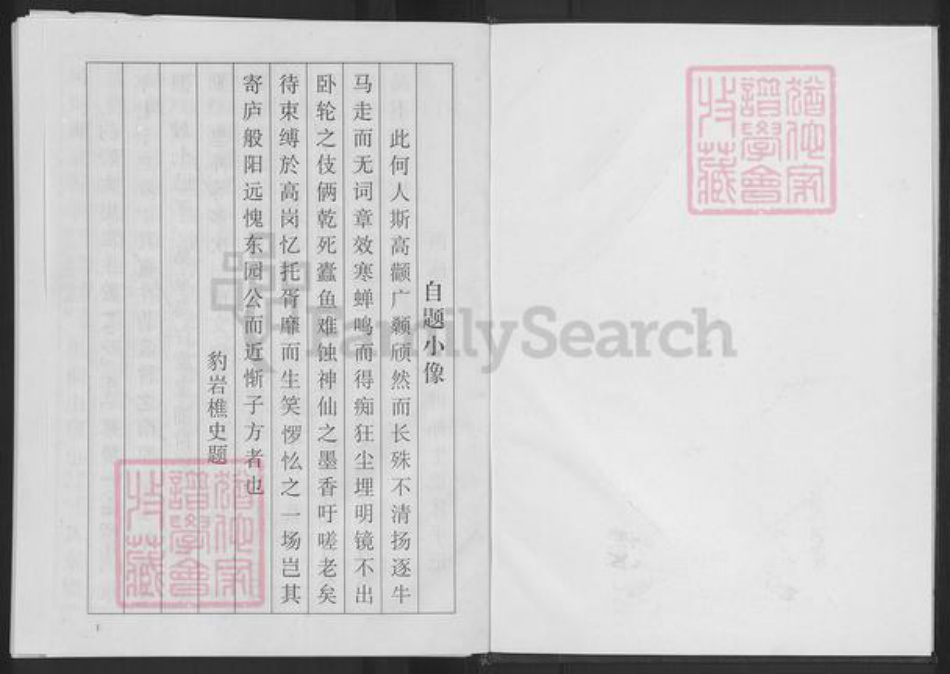 自题小像
此何人斯高颧广颡颀然而长殊不清扬逐牛
马走而无词章效寒蝉鸣而得痴狂尘埋明镜不出
卧轮之伎俩乾死蠹鱼难蚀神仙之墨香吁嗟老矣
待束缚於高岗忆托胥靡而生笑㦬忪之一场岂其
寄庐般阳远愧东园公而近惭子方者也
豹岩樵史题
FamilySearch
猶他家
譜學會
收藏
猶他家
譜學會
收藏